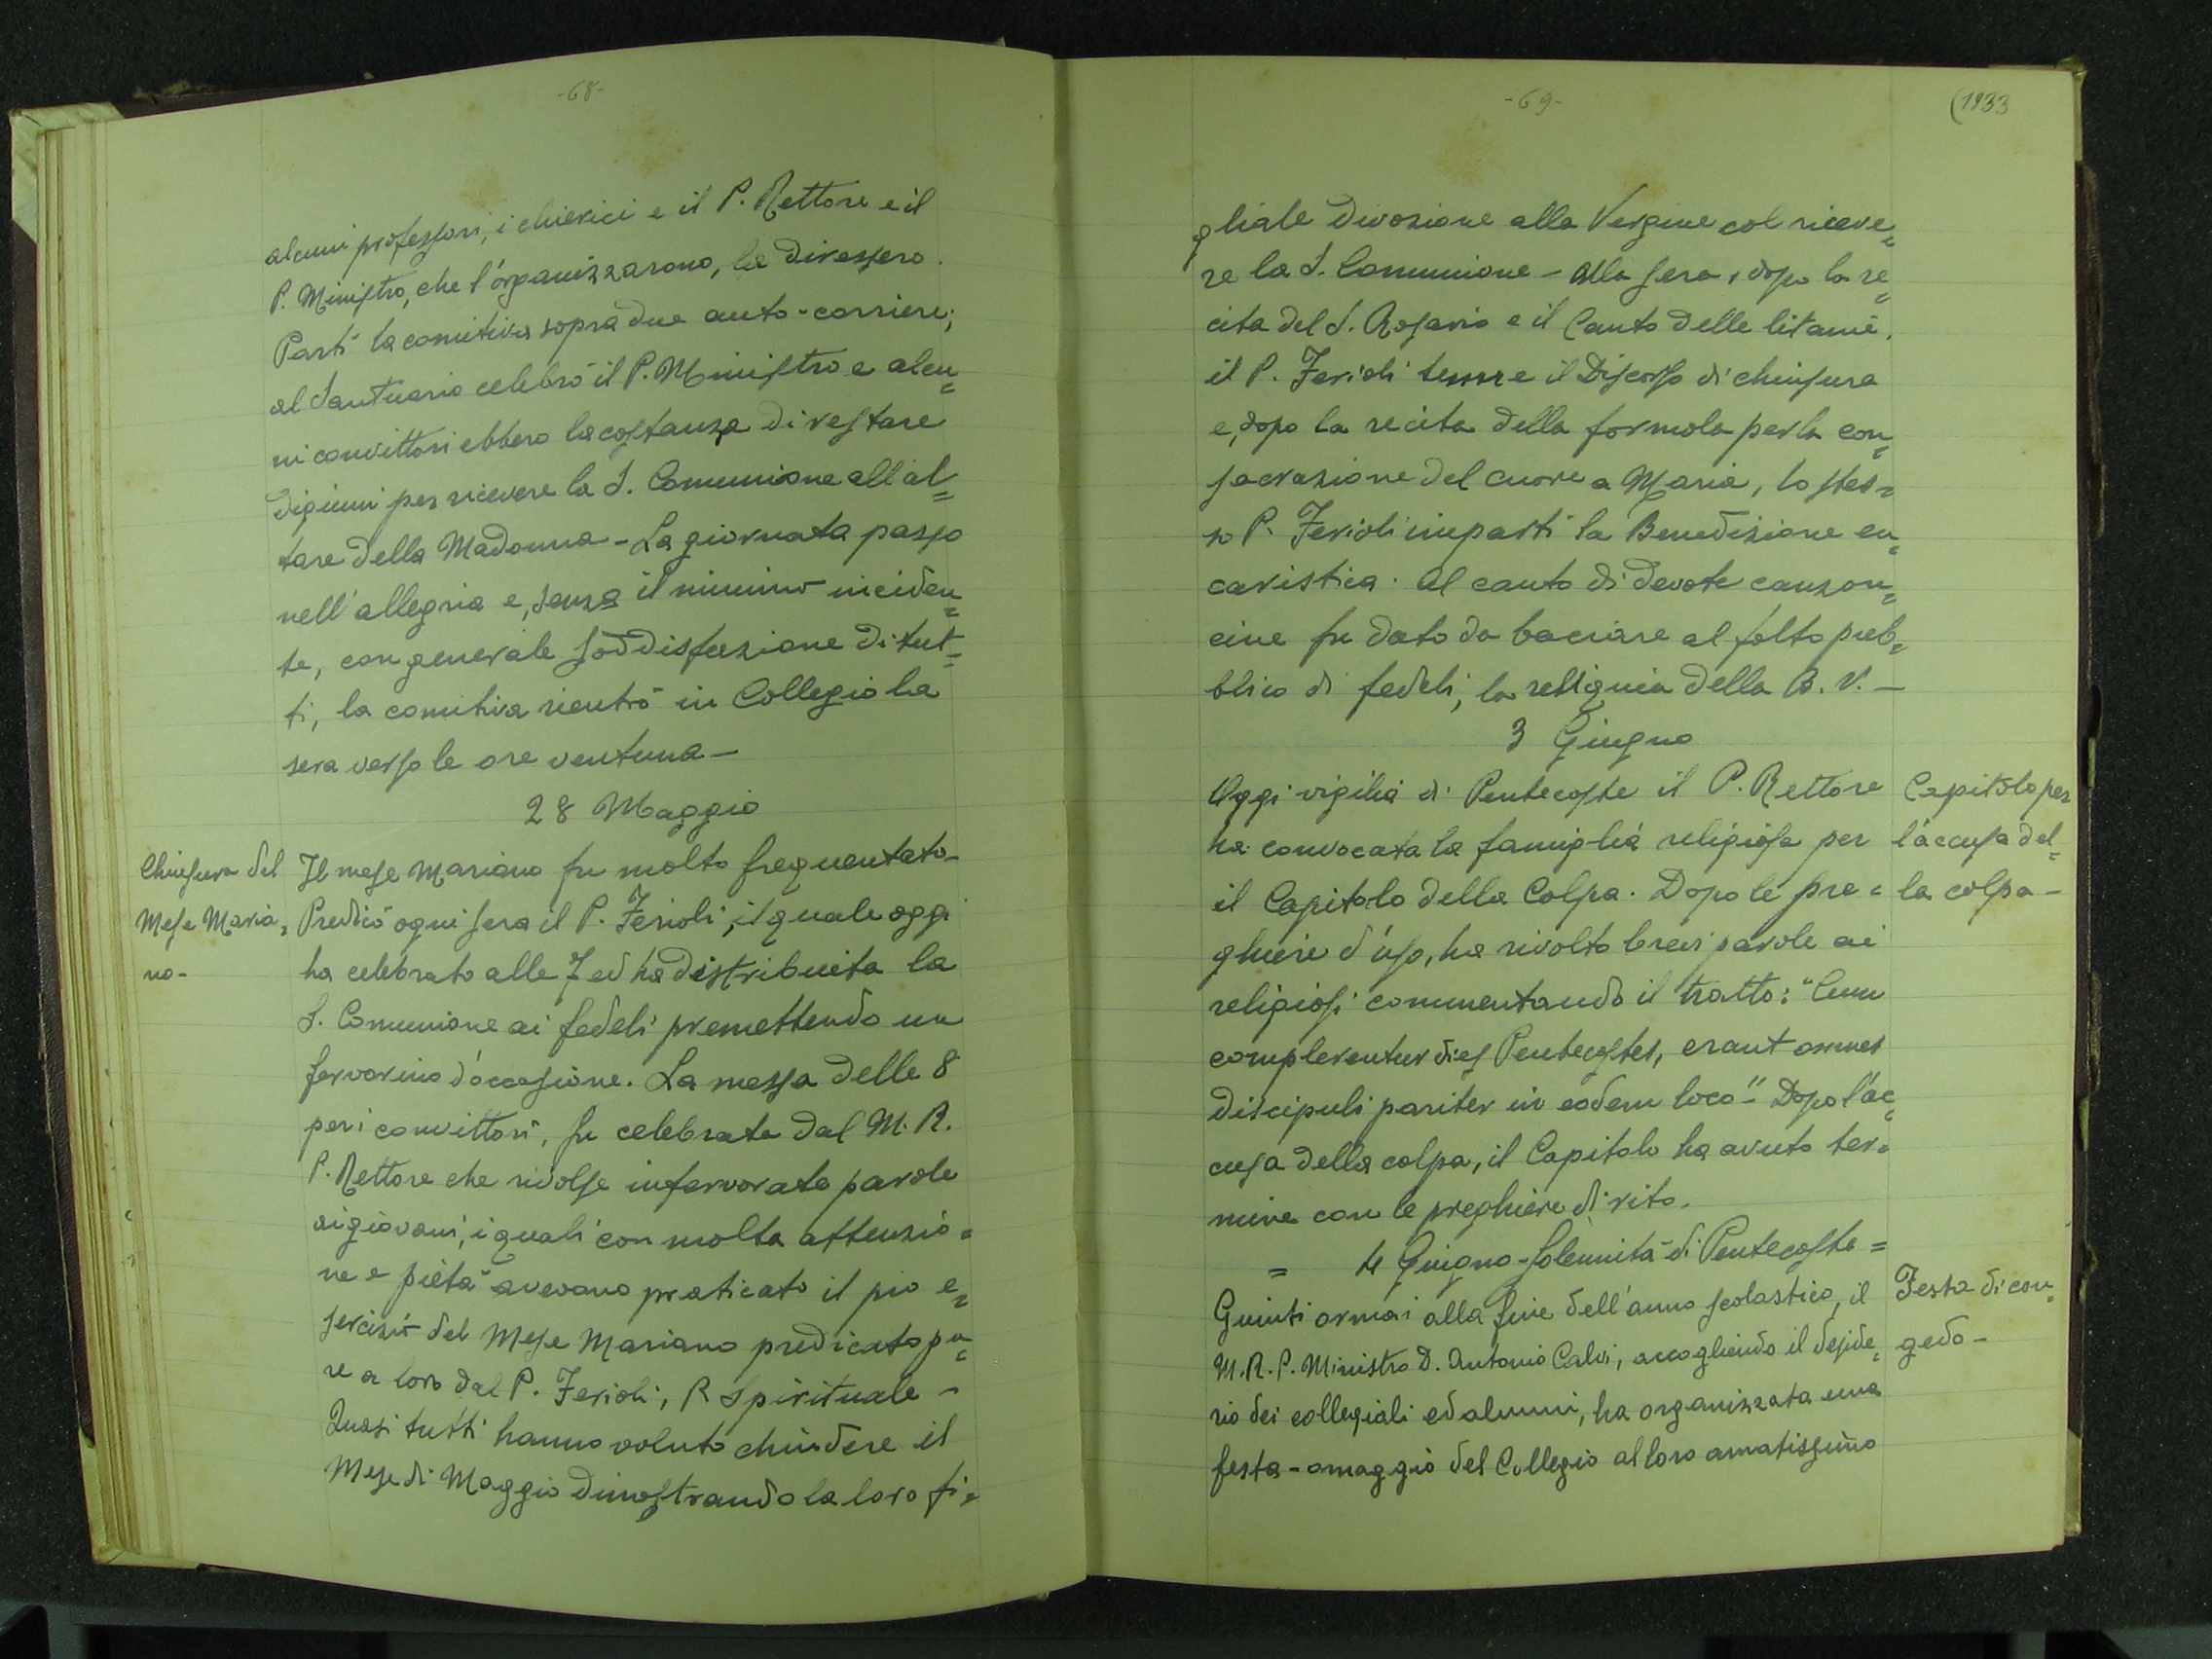 -68-
alcuni professori, i chierici e il P. Rettore e il
P. Ministro, che l'organizzarono, la diressero.
Partì la comitiva sopra due auto-corriere;
al Santuario celebrò il P. Ministro e alcu=
ni convittori ebbero la costanza di restare
digiuni per ricevere la S. Comunione all'al=
tare della Madonna - La giornata passò
nell'allegria e, senza il minimo inciden=
te, con generale soddisfazione di tut=
ti, la comitiva rientrò in Collegio la
sera verso le ore ventuna -
28 Maggio
Chiusura del
Mese Maria=
no -
Il mese Mariano fu molto frequentato -
Predicò ogni sera il P. Ferioli, il quale oggi
ha celebrato alle 7 ed ha distribuita la
S. Comunione ai fedeli premettendo un
fervorino d'occasione. La messa delle 8
per i convittori, fu celebrata dal M. R.
P. Rettore che rivolse infervorate parole
ai giovani, i quali con molta attenzio=
ne e pietà avevano praticato il pio e=
sercizio del Mese Mariano predicato pu=
re a loro dal P. Ferioli, P. Spirituale -
Quasi tutti hanno voluto chiudere il
Mese di Maggio dimostrando la loro fi=
-69-
(1933
gliale divozione alla Vergine col riceve=
re la S. Comunione - Alla sera, dopo la re=
cita del S. Rosario e il Canto delle litanie,
il P. Ferioli tenne il Discorso di chiusura
e, dopo la recita della formola per la con=
sacrazione del cuore a Maria, lo stes=
so P. Ferioli impartì la Benedizione eu=
caristica. Al canto di devote canzon=
cine fu dato da baciare al folto pub=
blico di fedeli, la reliquia della B. V. -
3 Giugno
Oggi vigilia di Pentecoste il P. Rettore
ha convocata la famiglia religiosa per
il Capitolo della Colpa. Dopo le pre=
ghiere d'uso, ha rivolto brevi parole ai
religiosi commentando il tratto: "Cum
complerentur dies Pentecostes, erant omnes
discipuli pariter in eodem loco" Dopo l'ac=
cusa della colpa, il Capitolo ha avuto ter=
mine con le preghiere di rito.
Capitolo per
l'accusa del=
la colpa -
= 4 Giugno - Solennità di Pentecoste =
Giunti ormai alla fine dell'anno scolastico, il
M. R. P. Ministro D. Antonio Calvi, accogliendo il deside=
rio dei collegiali ed alunni, ha organizzata una
festa - omaggio del Collegio al loro amatissimo
Festa di con=
gedo -